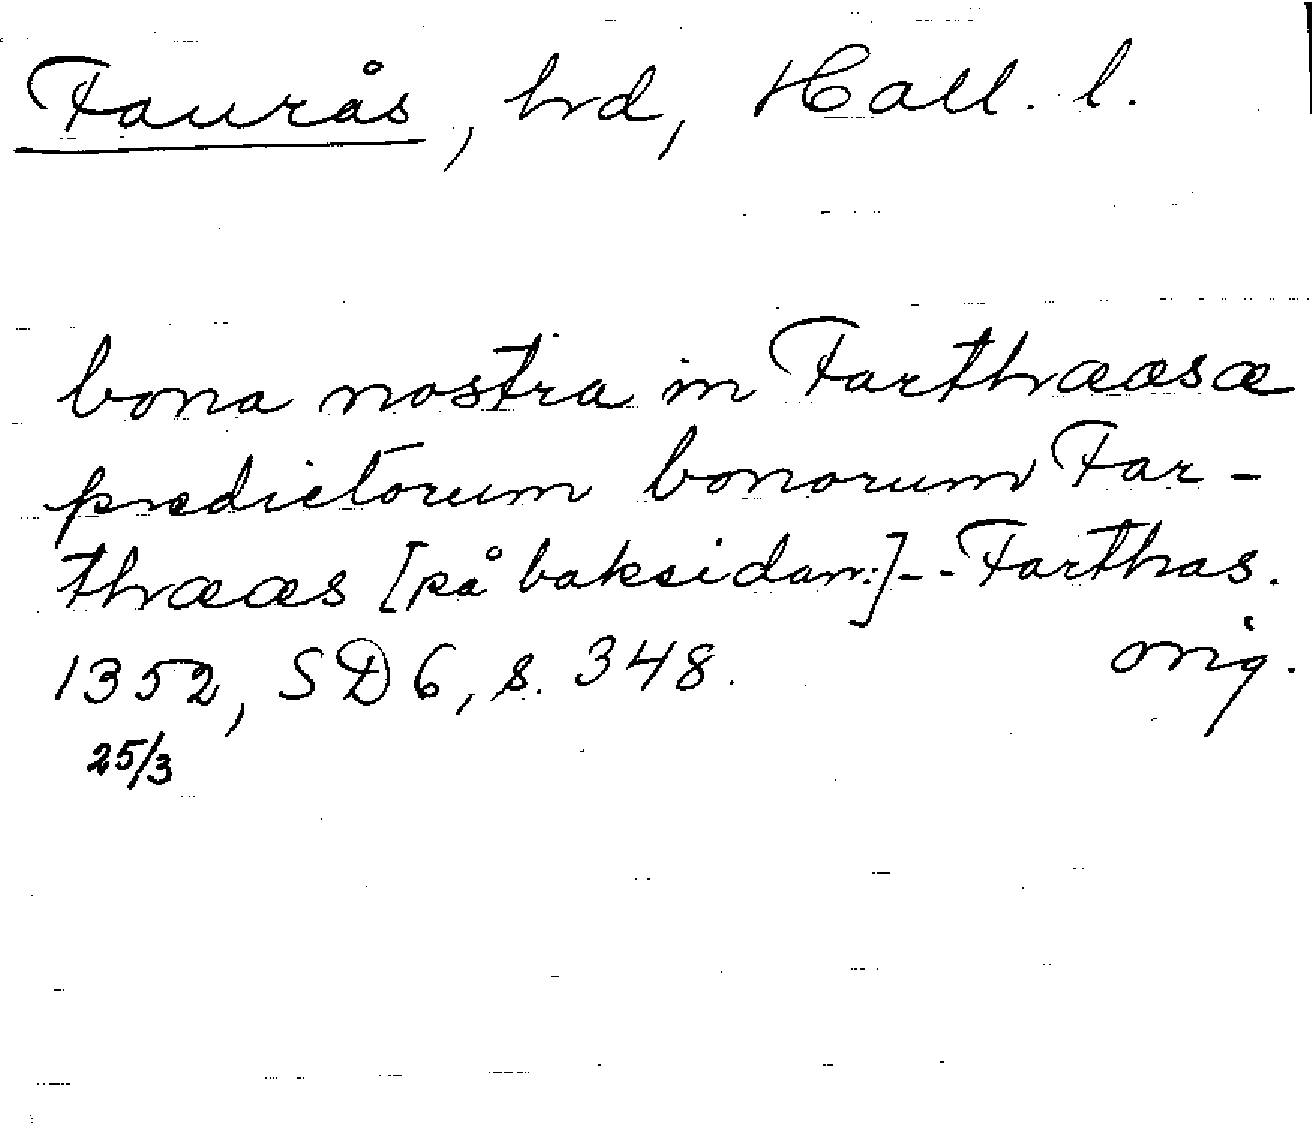 Faurås, hrd, Hall. l.
bona nostra in Farthrææsæ
predictorum bonorum Far-
thrææs [på baksidan:]-- Farthas.
1352, SD 6, s. 348. orig.
25/3